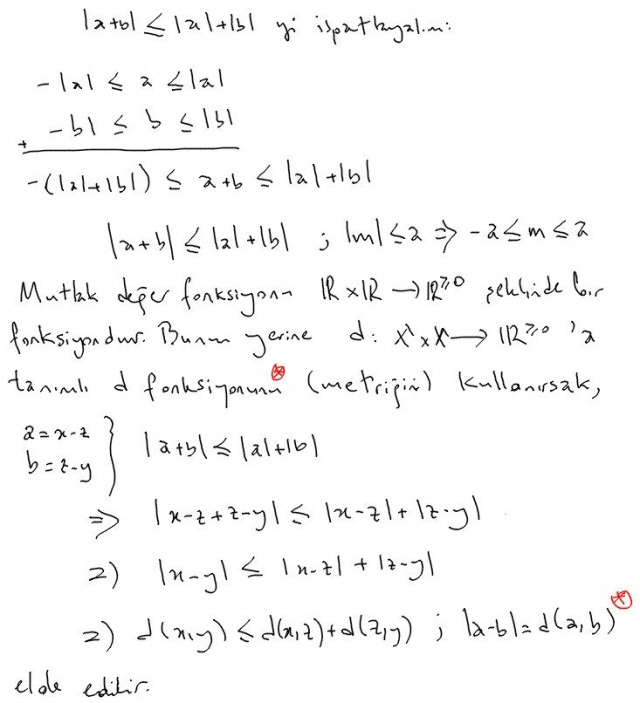 |a+b| ≤ |a|+|b| yi ispatlayalım:
-|a| ≤ a ≤ |a|
+ -|b| ≤ b ≤ |b|
-(|a|+|b|) ≤ a+b ≤ |a|+|b|
|a+b| ≤ |a|+|b| ; |m| ≤ a => -a ≤ m ≤ a
Mutlak değer fonksiyonu ℝ×ℝ → ℝ≥0 şeklinde bir
fonksiyondur. Bunun yerine d: X×X → ℝ≥0 'a
tanımlı d fonksiyonunu * (metriğini) kullanırsak,
a = x-z
b = z-y } |a+b| ≤ |a|+|b|
=> |x-z+z-y| ≤ |x-z|+|z-y|
=> |x-y| ≤ |x-z| + |z-y|
=> d(x,y) ≤ d(x,z)+d(z,y) ; |a-b| = d(a,b) *
elde edilir.